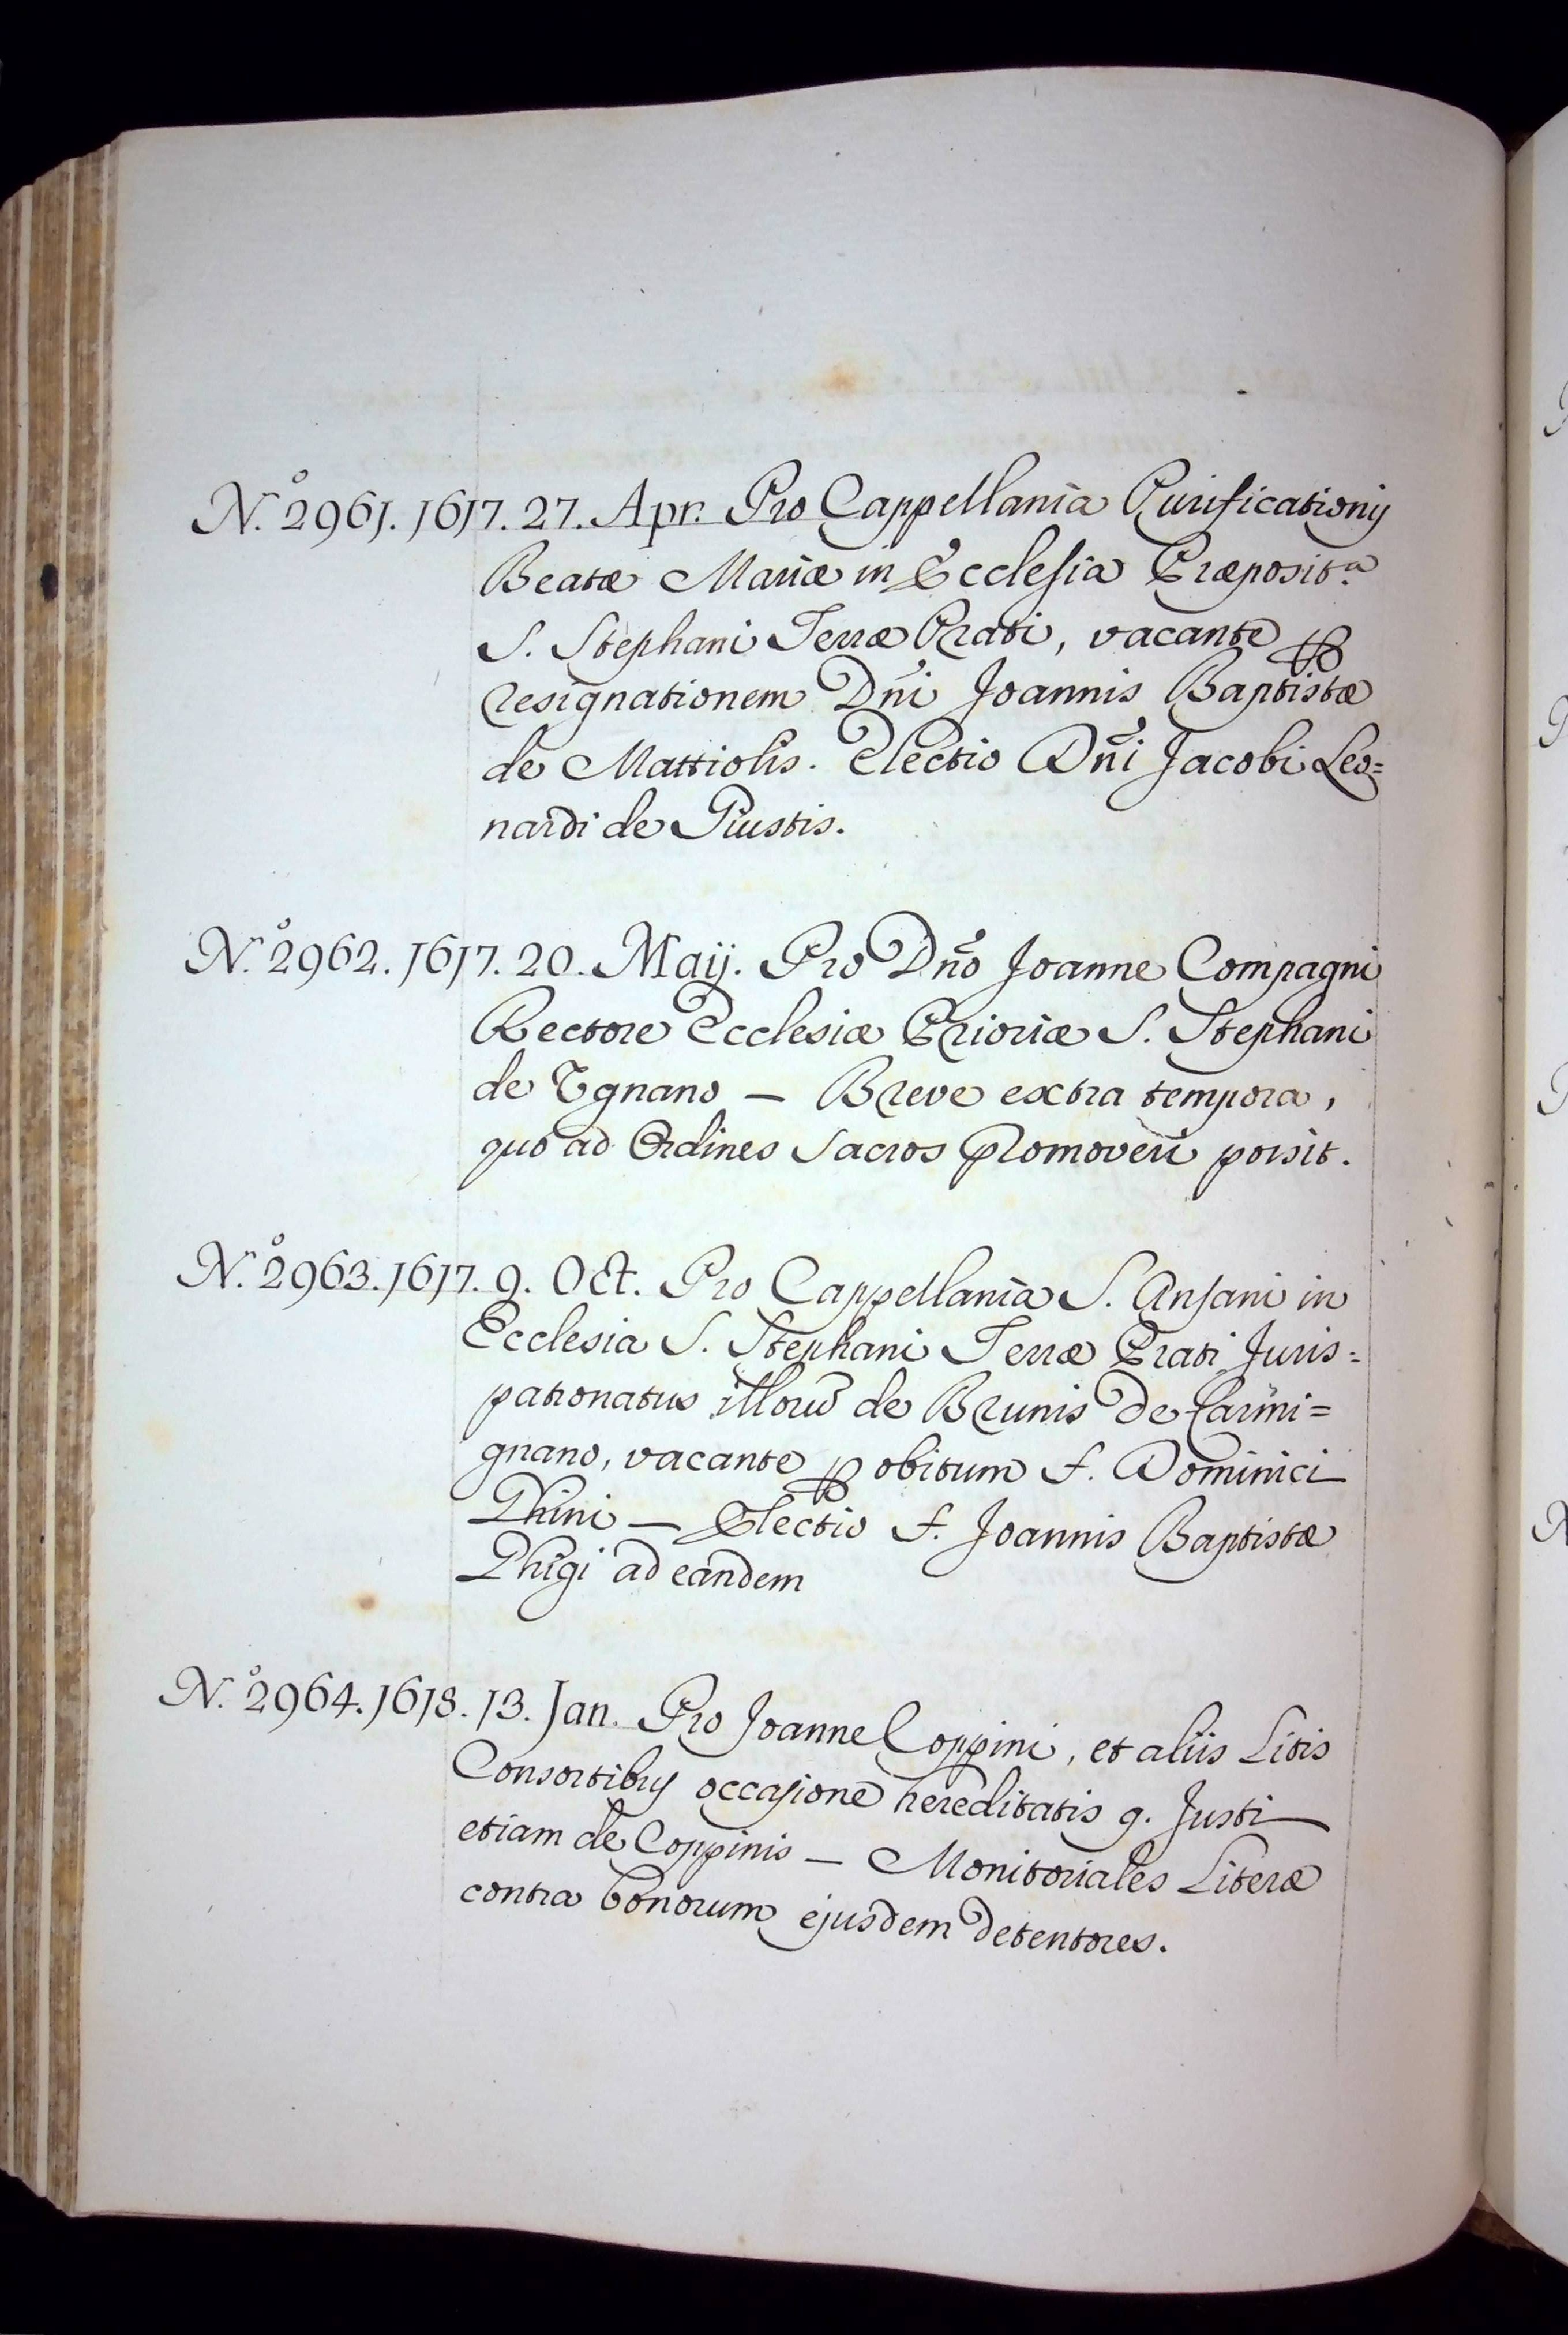 N.º 2961. 1617. 27. Apr. Pro Cappellania Purificationis
Beatæ Mariæ in Ecclesia Præposit.ª
S. Stephani Terræ Prati, vacante ꝑ
resignationem Dñi Joannis Baptistæ
de Mattiolis. Electio Dñi Jacobi Leo=
nardi de Giustis.
N.º 2962. 1617. 20. Maij. Pro Dño Joanne Compagni
Rectore Ecclesiæ Prioriæ S. Stephani
de Ygnano — Breve extra tempora,
quo ad Ordines Sacros promoveri possit.
N.º 2963. 1617. 9. Oct. Pro Cappellania S. Ansani in
Ecclesia S. Stephani Terræ Prati Juris=
patronatus illorū de Brunis de Carmi=
gnano, vacante ꝑ obitum f. Dominici
Ghini — Electio f. Joannis Baptistæ
Ghigi ad eandem
N.º 2964. 1618. 13. Jan. Pro Joanne Coppini, et aliis Litis
Consortibus occasione hereditatis q. Justi
etiam de Coppinis — Monitoriales Literæ
contra bonorum ejusdem detentores.